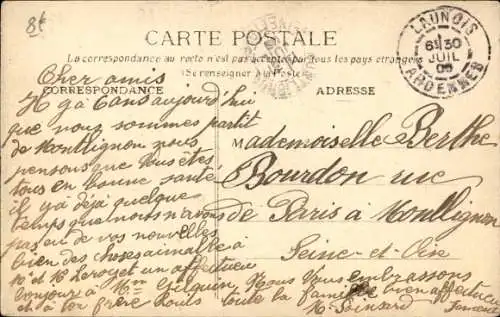 8f
CARTE POSTALE
La correspondance au recto n'est pas acceptée par tous les pays étrangers
(Se renseigner à la Poste)
CORRESPONDANCE
ADRESSE
LAUNOIS
6 30
JUIL
ARDENNES
Cher amis
Il y a 6 ans aujourd'hui
que nous sommes partit
de Montlignon nous
pensons que vous êtes
tous en bonne santé
il y a déjà quelque
temps que nous n'avons
pas eu de vos nouvelles
bien des choses aimable à
Mr et Me Leroy et un affectueux
bonjour à Mme
et à ton frère Louis
Mademoiselle Berthe
Bourdon rue
de Paris à Montlignon
Seine-et-Oise
Nous vous embrassons
toute la famille bien affectueu
sement